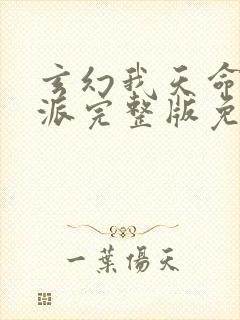 玄幻我天命
派完整版免
一葉傷天